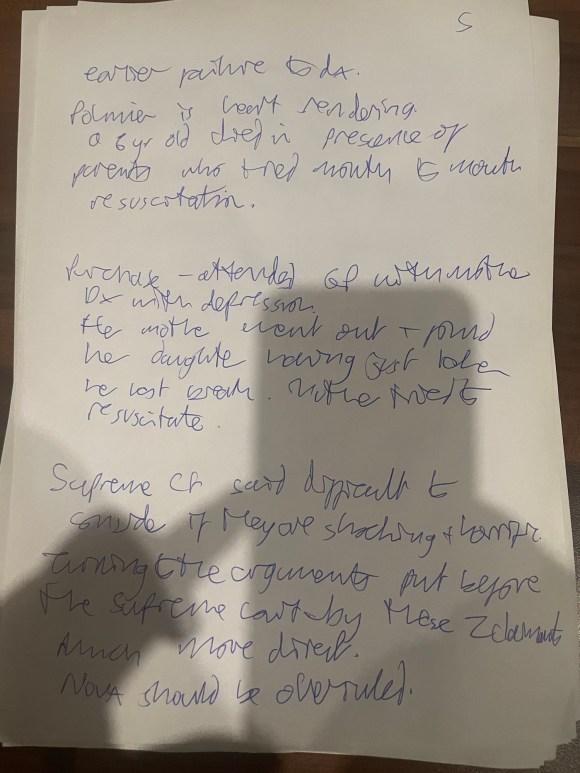 5
earlier failure to dx.
Polmier is heart rendering.
a 6 yr old died in presence of
parents who tried mouth to mouth
resuscitation.
Purchase - attended GP with mother
Dx with depression.
The mother went out + found
her daughter having just taken
her last breath. Mother tried to
resuscitate.
Supreme Ct said difficult to
consider if they are shocking + horrific.
Turning to the arguments put before
the Supreme court by these 2 claimants
much more direct.
Nova should be overruled.